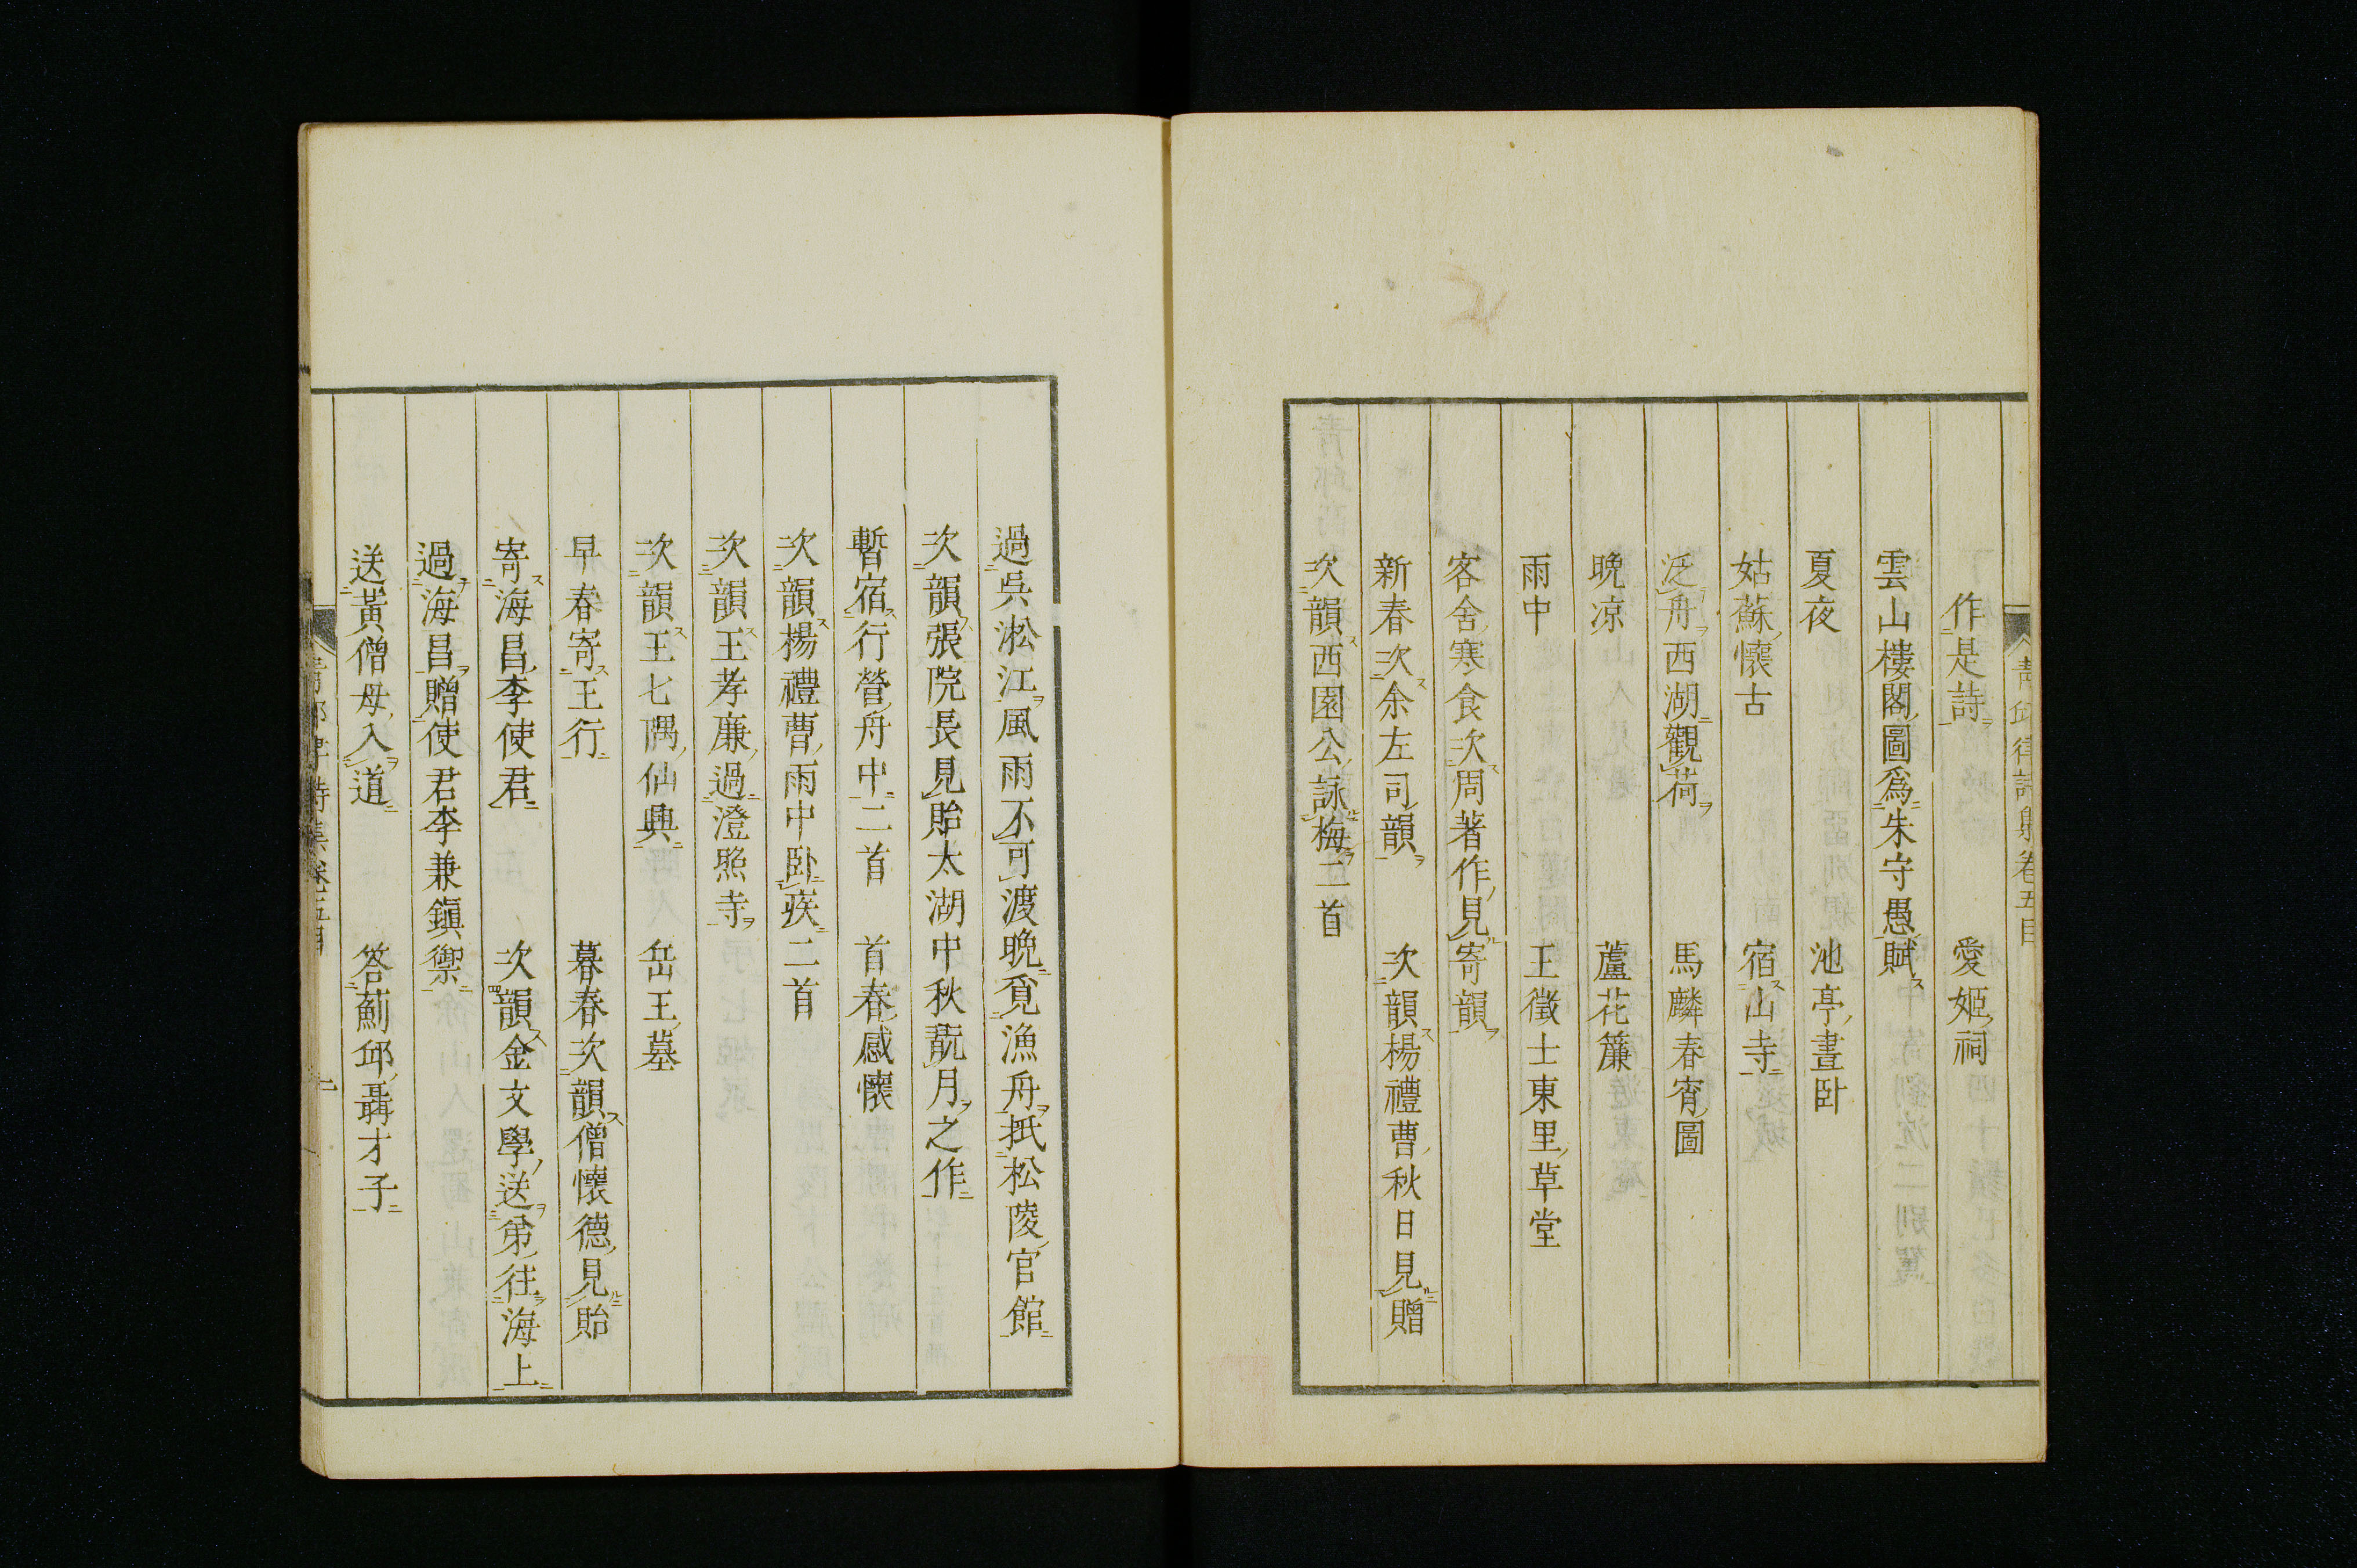 青邱律詩集卷五目
作是詩　愛姬祠
雲山樓閣圖爲朱守愚賦
夏夜　池亭晝臥
姑蘇懷古　宿山寺
泛舟西湖觀荷　馬麟春宵圖
晩凉　蘆花簾
雨中　王徵士東里草堂
客舍寒食次周著作見寄韻
新春次余左司韻　次韻楊禮曹秋日見贈
次韻西園公詠梅二首
過吳淞江風雨不可渡晩覓漁舟抵松陵官館
次韻張院長見貽太湖中秋翫月之作
暫宿行營舟中二首　首春感懷
次韻楊禮曹雨中臥疾二首
次韻王孝廉過澄照寺
次韻王七隅仙興　岳王墓
早春寄王行　暮春次韻僧懷德見貽
寄海昌李使君　次韻金文學送弟往海上
過海昌贈使君李兼鎭禦
送黃僧母入道　答薊邱聶才子